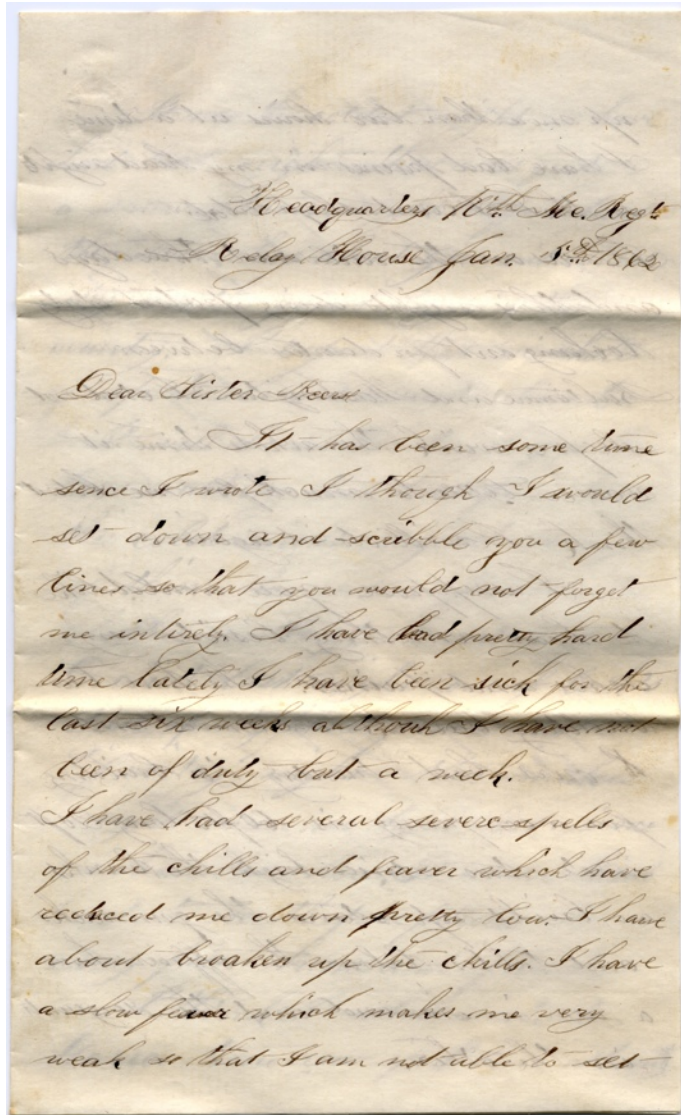 Headquarters 10th Me. Regt
Relay House Jan. 5th 1862
Dear Sister
It has been some time
sence I wrote I though I would
set down and scribble you a few
lines so that you would not forget
me intirely. I have had pretty hard
time lately I have been sick for the
last six weeks althouh I have not
been of duty but a week.
I have had several severe spells
of the chills and feaver which have
reduced me down pretty low. I have
about broaken up the chills. I have
a slow feaver which makes me very
weak so that I am not able to set